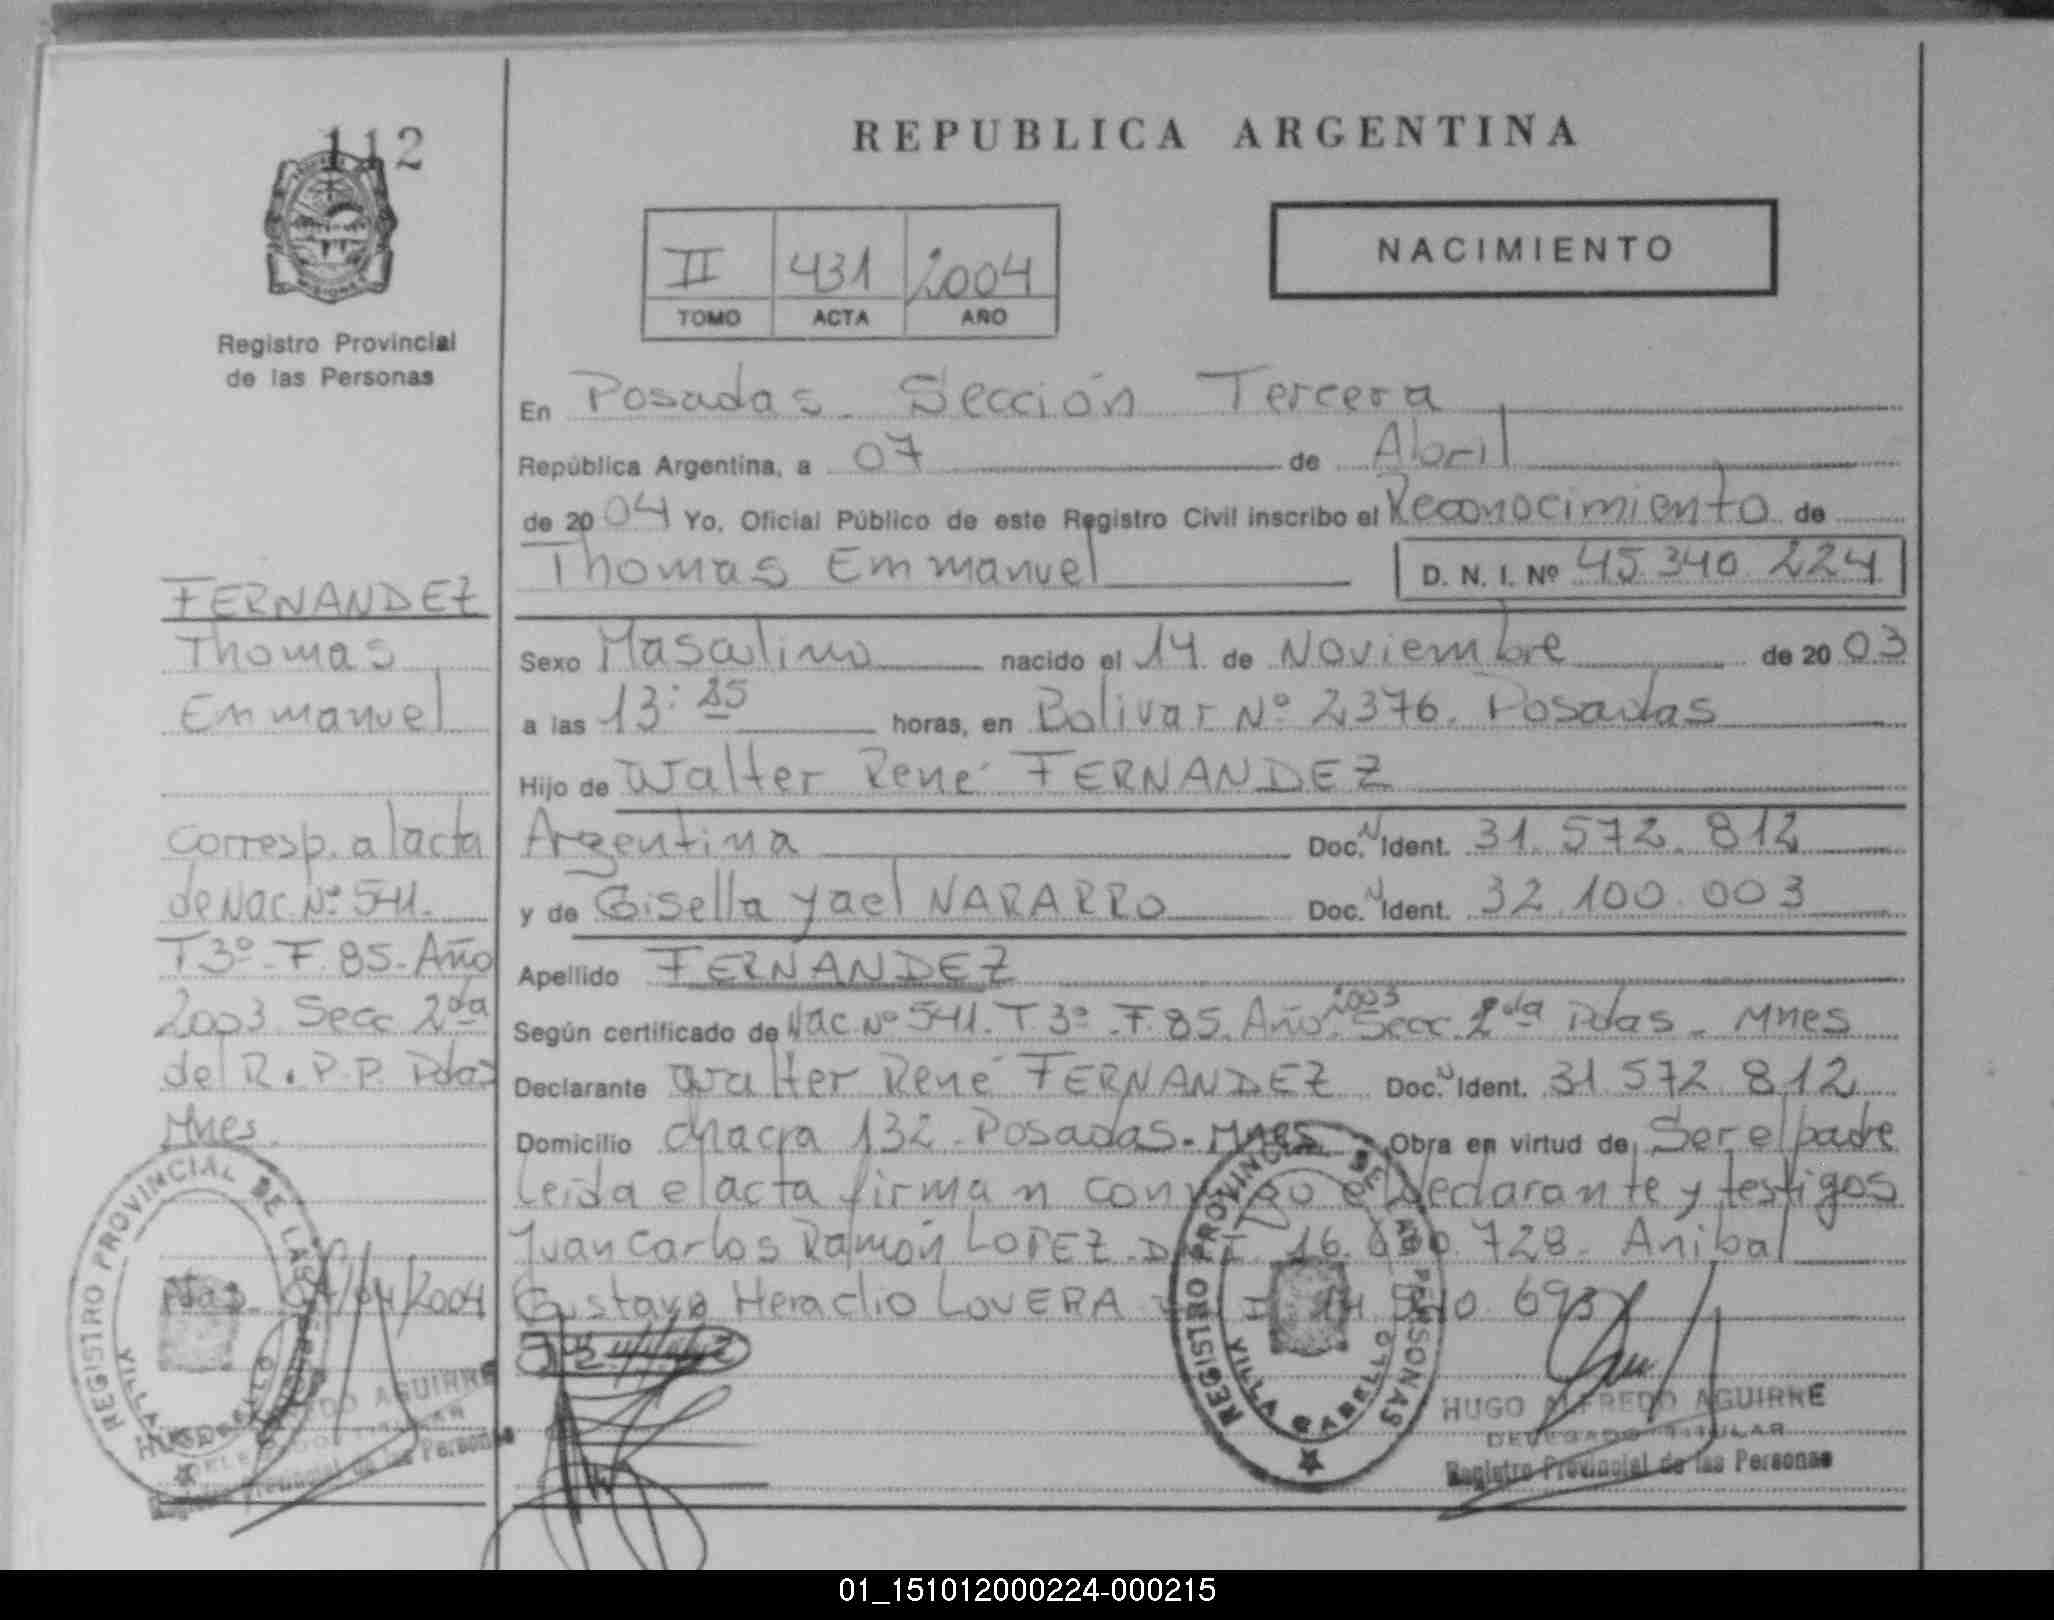 112
MISIONES
Registro Provincial
de las Personas
REPUBLICA ARGENTINA
II 431 2004
TOMO ACTA AÑO
NACIMIENTO
En Posadas. Sección Tercera
República Argentina, a 07 de Abril
de 2004 Yo, Oficial Público de este Registro Civil inscribo el Reconocimiento de
Thomas Emmanuel D. N. I. Nº 45.340.224
Sexo Masculino nacido el 14 de Noviembre de 2003
a las 13: horas, en Bolivar Nº 2376. Posadas
Hijo de Walter René FERNANDEZ
Argentina Doc. N Ident. 31.572.812
y de Gisella Yael NARARRO Doc. N Ident. 32.100.003
Apellido FERNANDEZ
Según certificado de Nac. Nº 541. T 3º. F 85. Año 2003 Secc. 2da Pdas. Mnes
Declarante Walter René FERNANDEZ Doc. N Ident. 31.572.812
Domicilio chacra 132 - Posadas - Mnes Obra en virtud de Ser el padre
leida el acta firman conmigo el declarante y testigos
Juan Carlos Ramón LOPEZ D.N.I. 16. 728. Anibal
Gustavo Heraclio LOVERA 693
FERNANDEZ
Thomas
Emmanuel
Corresp. al acta
de Nac. Nº 541.
T 3º - F. 85 - Año
2003 Secc 2da
del R.P.P. Pdas
Mnes.
Pdas. 07/04/2004
REGISTRO PROVINCIAL DE LAS PERSONAS
VILLA CABELLO
HUGO ALFREDO AGUIRRE
DELEGADO TITULAR
Registro Provincial de las Personas
REGISTRO PROVINCIAL DE LAS PERSONAS
VILLA CABELLO
HUGO ALFREDO AGUIRRE
DELEGADO TITULAR
Registro Provincial de las Personas
01_151012000224-000215